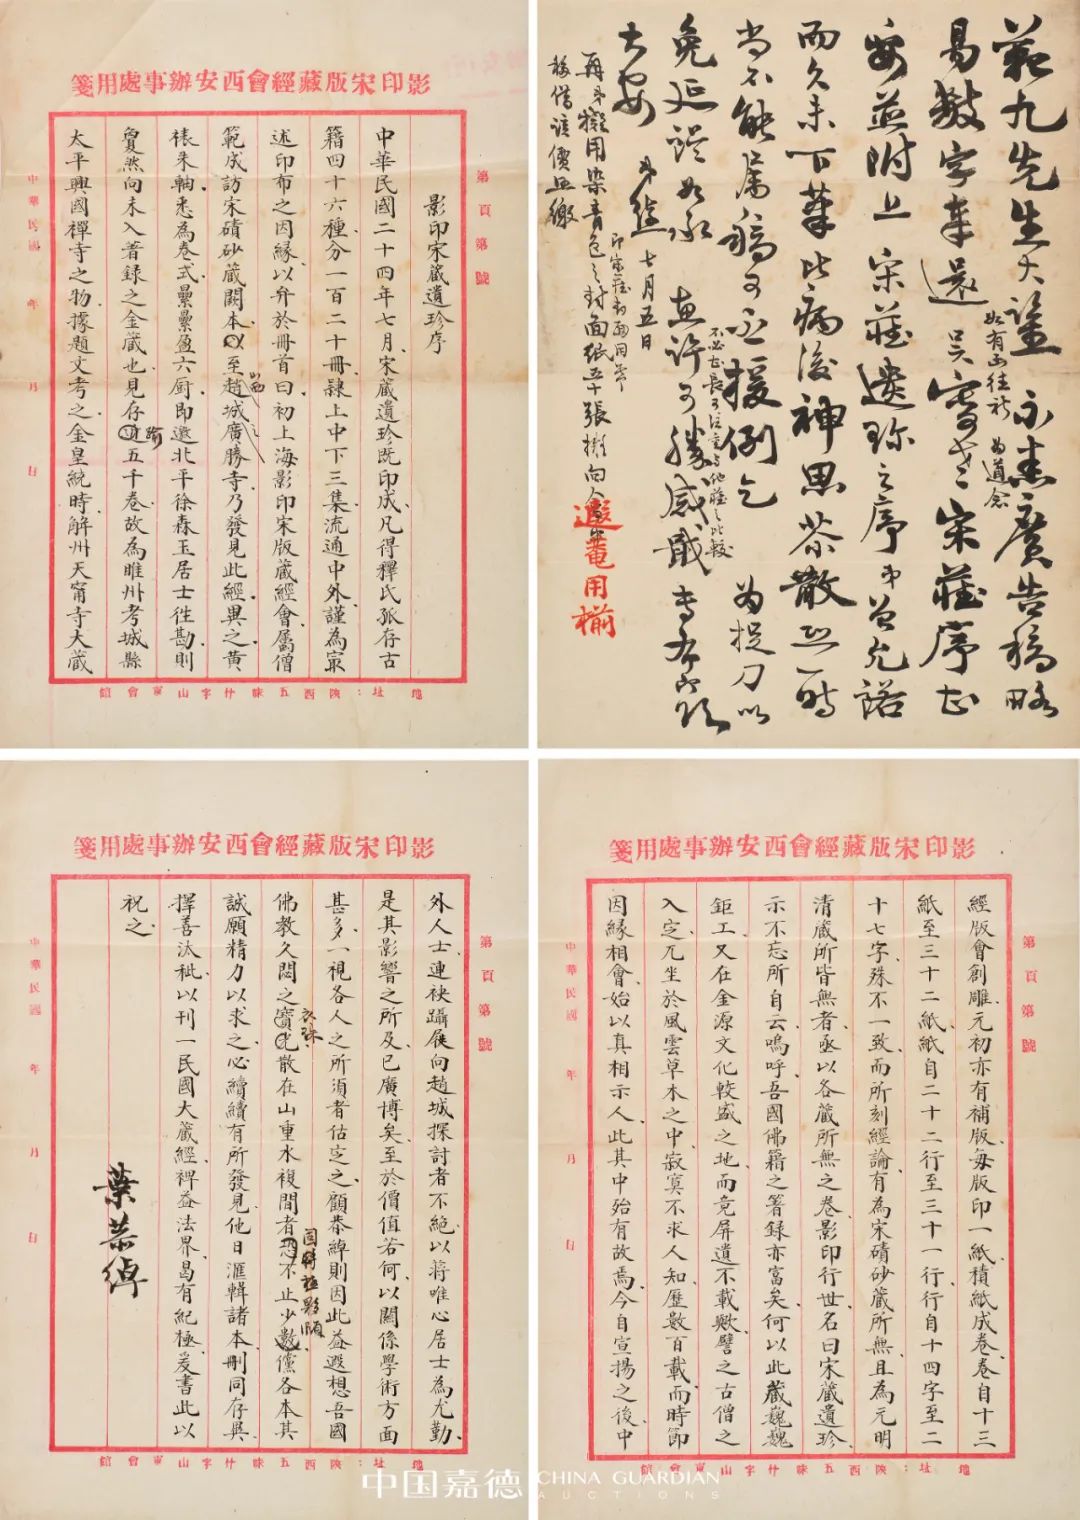 範九先生大鑒 示悉廣告稿略
易數字奉還 呂寄老宋藏序尚
如有函往祈 為道念
妥並附上 宋藏遺珍之序弟曾允諾
而久未下筆比病後神思茶散恐一時
尚不能屬稿可否援例乞 為捉刀以
不必甚長可注重與他藏之比較
免延誤如承 惠許可勝感戢專布即頌
大安 弟綽 七月五日
再弟擬用染青色之封面紙五十張擬向
移借該價照繳
遐菴用椾
影印宋版藏經會西安辦事處用箋
第 頁 第 號
影印宋藏遺珍序
中華民國二十四年七月宋藏遺珍既印成凡得釋氏孤存古
籍四十六種分一百二十冊隸上中下三集流通中外謹為最
述印布之因緣以弁於冊首曰初上海影印宋版藏經會屬僧
範成訪宋磧砂藏闕本以至山西趙城廣勝寺乃發見此經異之黃
裱朱軸悉為卷式纍纍盈六廚即邀北平徐森玉居士徃勘則
敻然向未入著録之金藏也見存逾五千卷故為睢州考城縣
太平興國禪寺之物據題文考之金皇統時解州天甯寺大藏
中華民國 年 月 日
地址：陝西五味什字山東會館
影印宋版藏經會西安辦事處用箋
第 頁 第 號
經版會創雕元初亦有補版每版印一紙積紙成卷卷自十三
紙至三十二紙紙自二十二行至三十一行行自十四字至二
十七字殊不一致而所刻經論有為宋磧砂藏所無且為元明
清藏所皆無者亟以各藏所無之卷影印行世名曰宋藏遺珍
示不忘所自云嗚呼吾國佛籍之箸録亦富矣何以此藏巍巍
鉅工又在金源文化較盛之地而竟屏遺不載歟譬之古僧之
入定兀坐於風雲草木之中寂寞不求人知歷數百載而時節
因緣相會始以真相示人此其中殆有故焉今自宣揚之後中
中華民國 年 月 日
地址：陝西五味什字山東會館
影印宋版藏經會西安辦事處用箋
第 頁 第 號
外人士連袂躡屐向趙城探討者不絶以蔣唯心居士為尤勤
是其影響之所及已廣博矣至於價值若何以關係學術方面
甚多一視各人之所須者估定之顧恭綽則因此益遐想吾國
佛教久閟之衣珠散在山重水複間者恐不止少數儻各本其
誠願精力以求之心續續有所發見他日滙輯諸本刪同存異
擇善汰秕以刊一民國大藏經裨益法界曷有紀極爰書此以
祝之
葉恭綽
中華民國 年 月 日
地址：陝西五味什字山東會館
中国嘉德 CHINA GUARDIAN
AUCTIONS